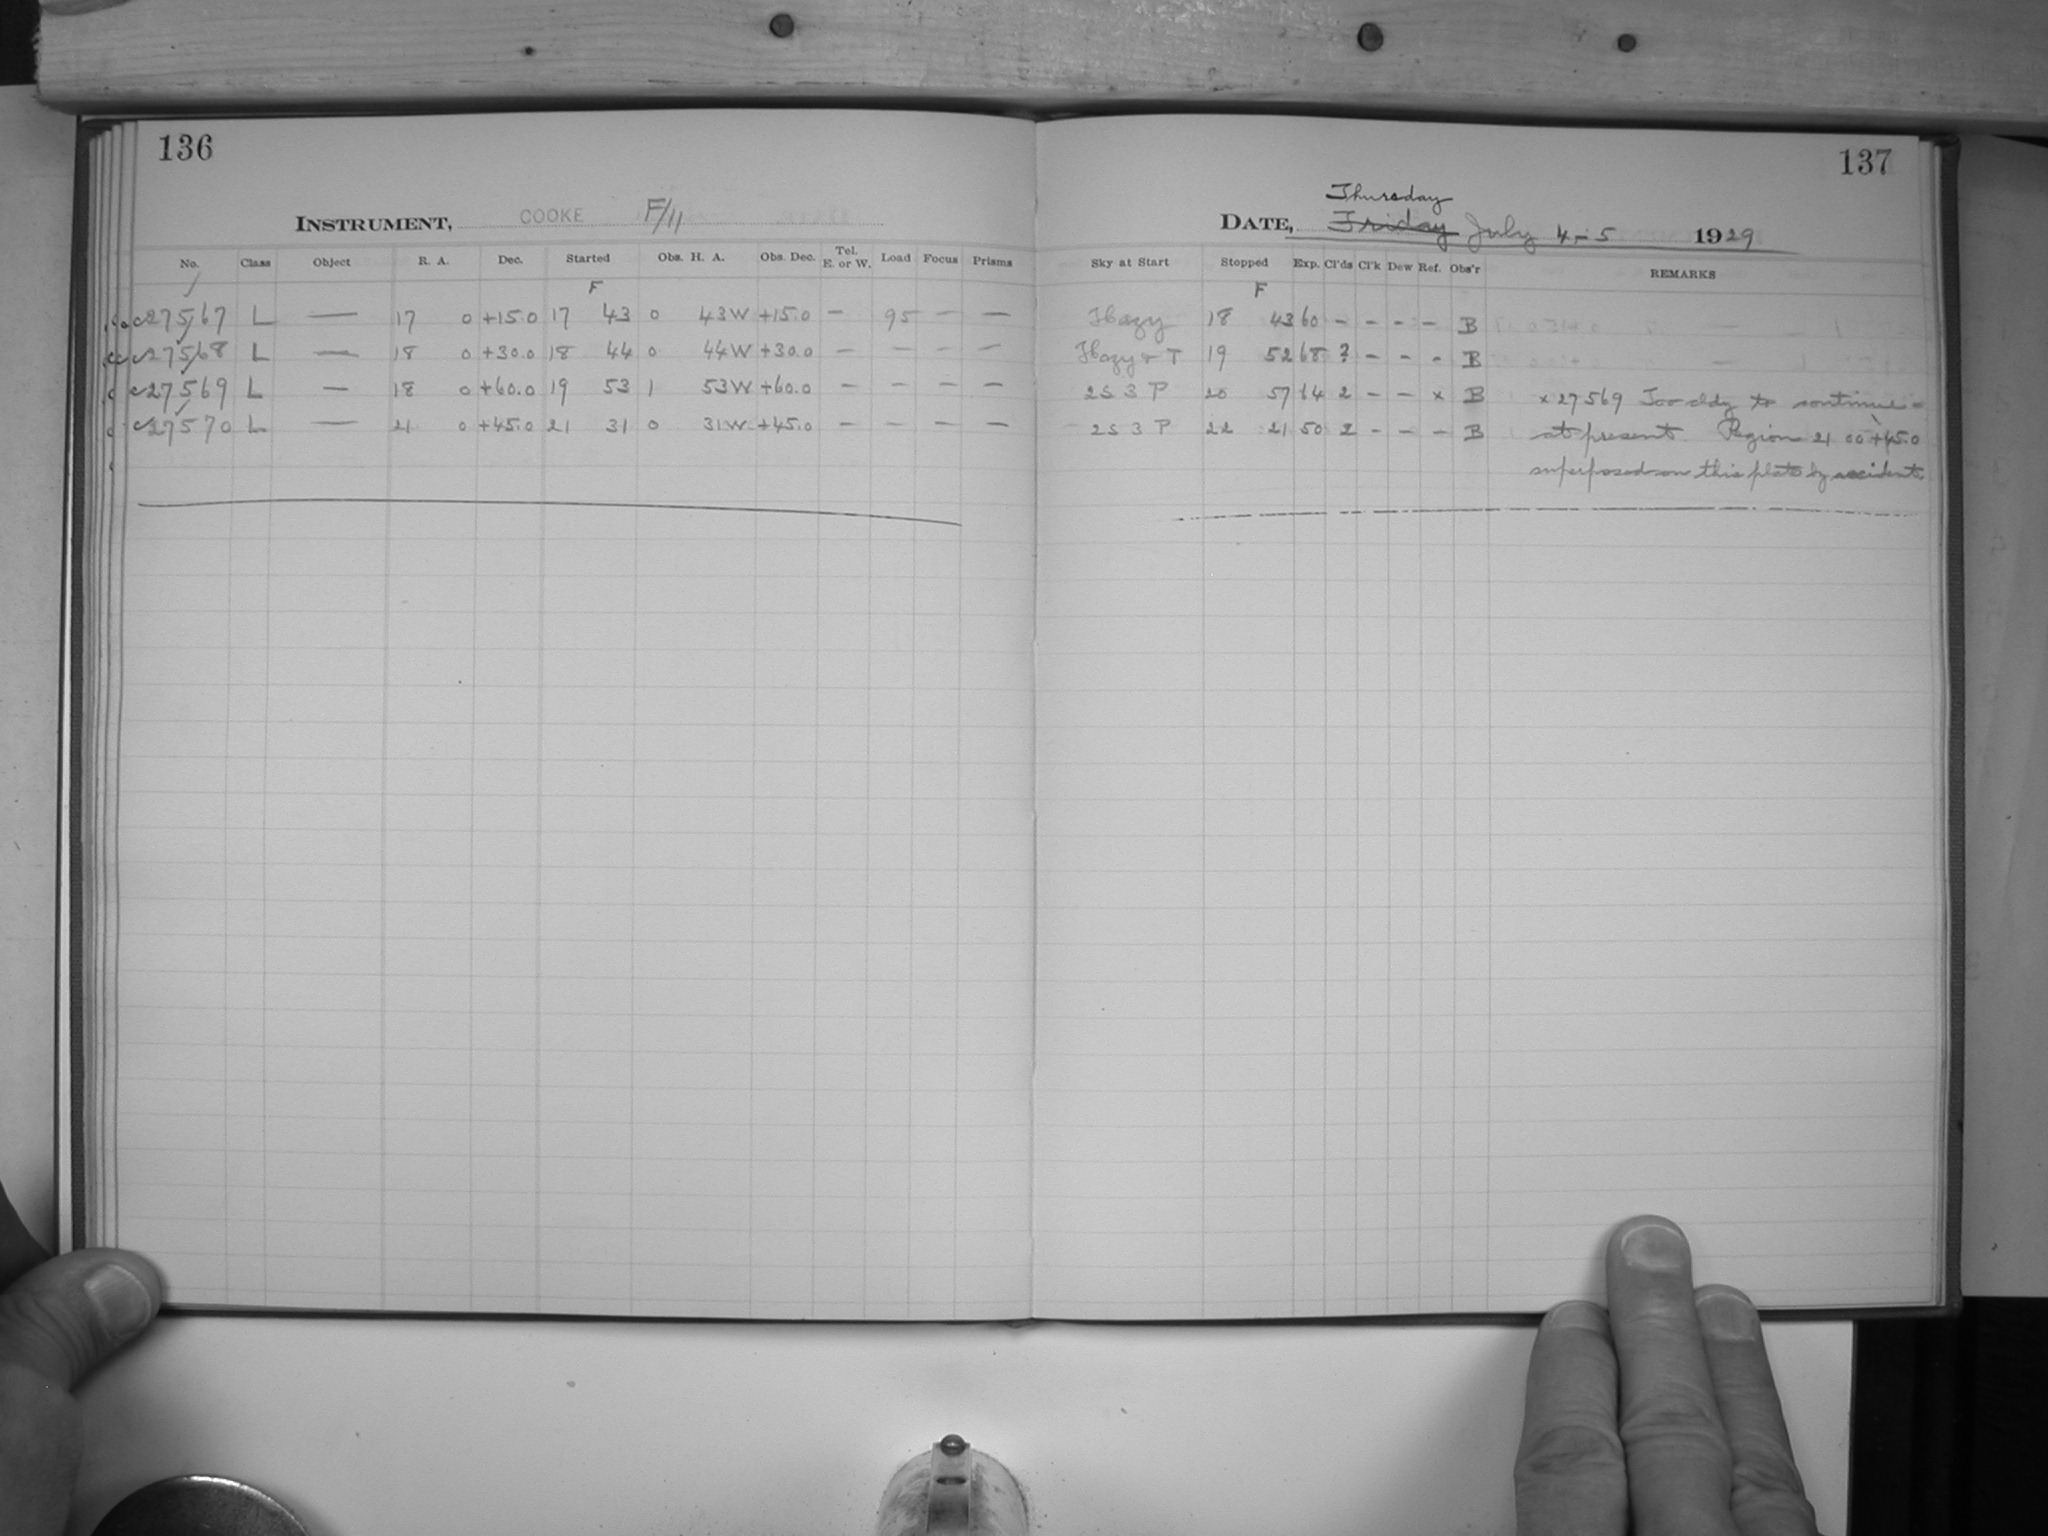 136
INSTRUMENT, COOKE F/11
No. Class Object R. A. Dec. Started Obs. H. A. Obs. Dec. Tel. E. or W. Load Focus Prisms
F
c27567 L — 17 0 +15.0 17 43 0 43W +15.0 — 95 — —
c27568 L — 18 0 +30.0 18 44 0 44W +30.0 — — — —
c27569 L — 18 0 +60.0 19 53 1 53W +60.0 — — — —
c27570 L — 21 0 +45.0 21 31 0 31W +45.0 — — — —
137
Thursday
DATE, Friday July 4-5 1929
Sky at Start Stopped Exp. Cl'ds Cl'k Dew Ref. Obs'r REMARKS
F
Hazy 18 43 60 - - - - B
Hazy + T 19 52 68 ? - - - B
2S 3 P 20 57 64 2 - - x B x 27569 Too cldy to continue -
2S 3 P 22 21 50 2 - - - B at present. Region 21 00 +45.0
superposed on this plate by accident.